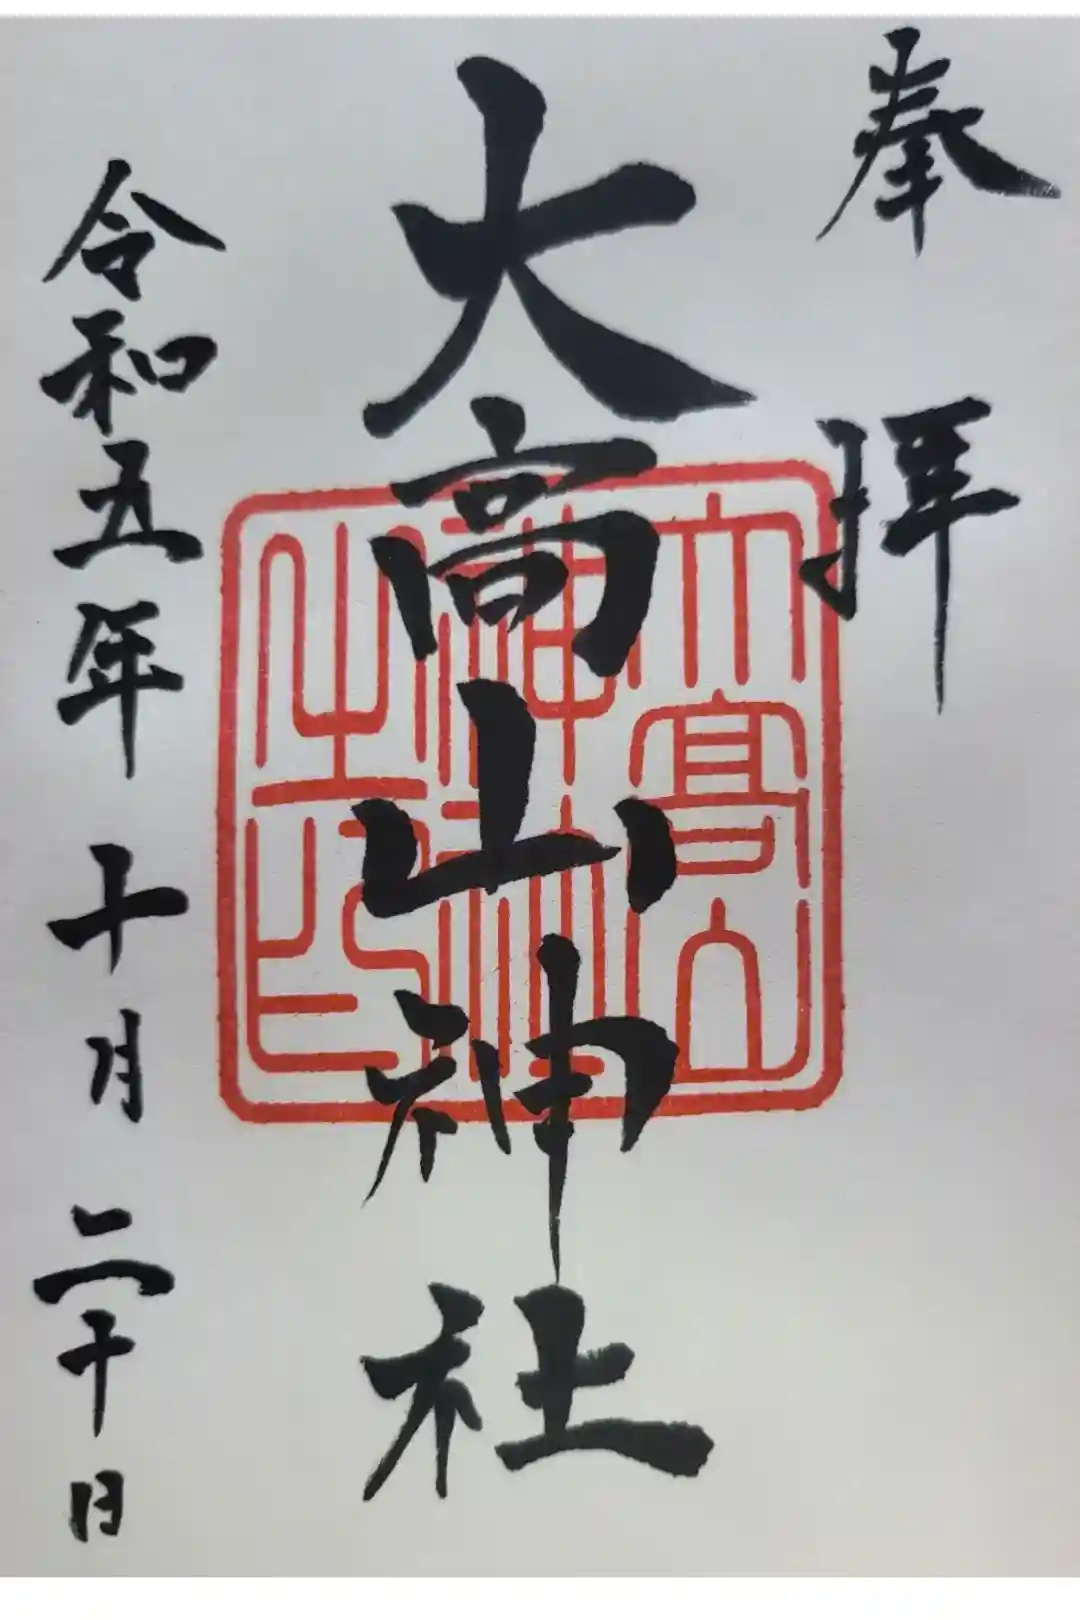 奉拝
大高山神社
令和五年十月二十日
大高山
神社
之印